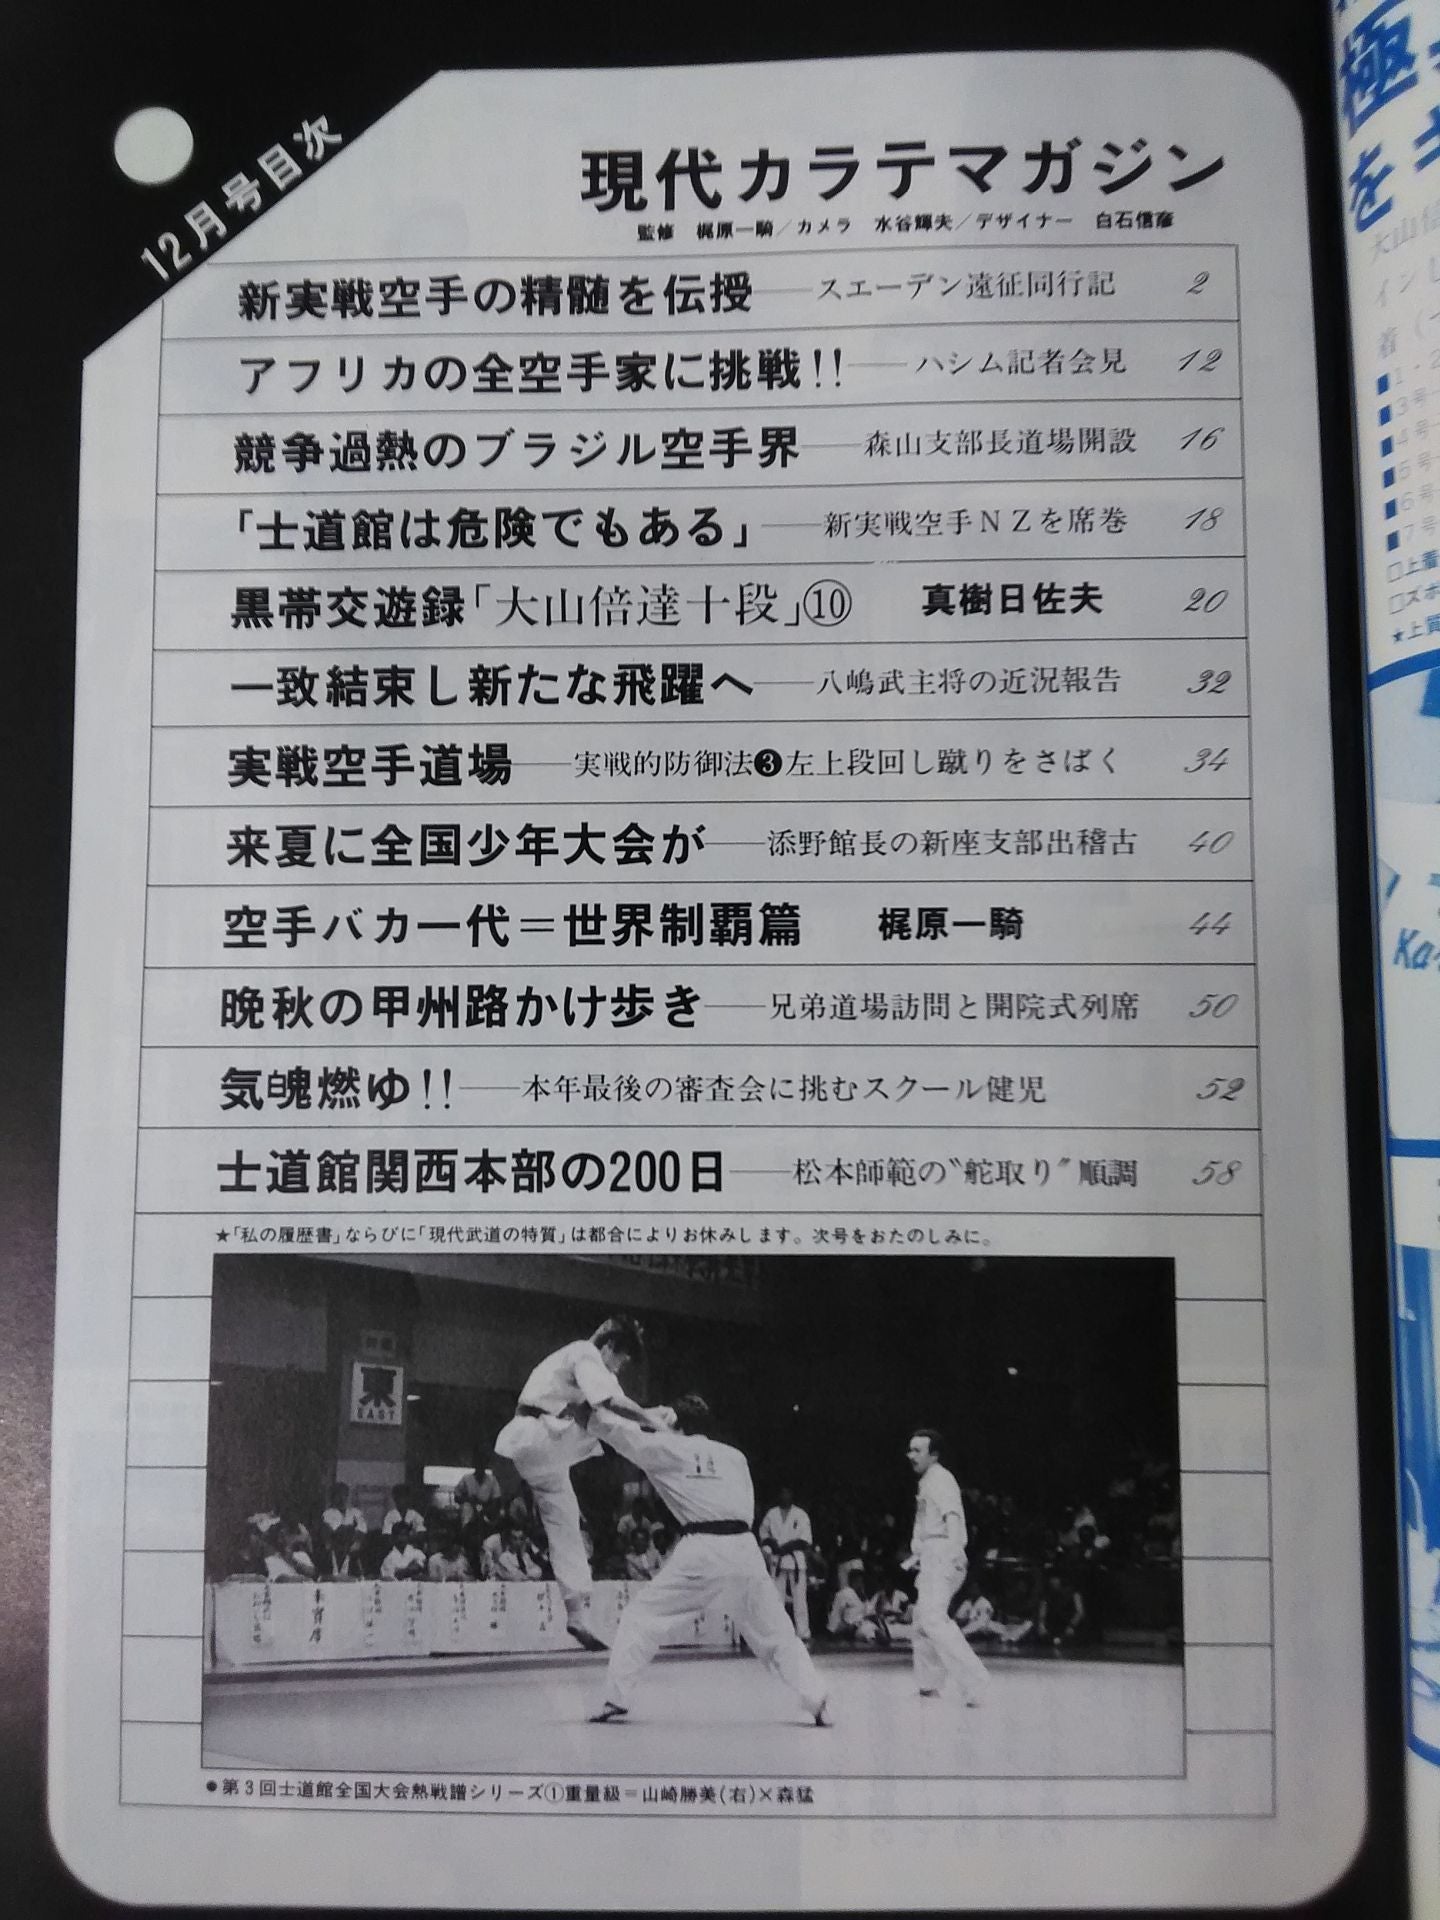 12月号目次
現代カラテマガジン
監修 梶原一騎/カメラ 水谷輝夫/デザイナー 白石信彦
新実戦空手の精髄を伝授――スエーデン遠征同行記 2
アフリカの全空手家に挑戦!!――ハシム記者会見 12
競争過熱のブラジル空手界――森山支部長道場開設 16
「士道館は危険でもある」――新実戦空手NZを席巻 18
黒帯交遊録「大山倍達十段」⑩ 真樹日佐夫 20
一致結束し新たな飛躍へ――八嶋武主将の近況報告 32
実戦空手道場――実戦的防御法❸左上段回し蹴りをさばく 34
来夏に全国少年大会が――添野館長の新座支部出稽古 40
空手バカ一代=世界制覇篇 梶原一騎 44
晩秋の甲州路かけ歩き――兄弟道場訪問と開院式列席 50
気魄燃ゆ!!――本年最後の審査会に挑むスクール健児 52
士道館関西本部の200日――松本師範の〝舵取り〞順調 58
★「私の履歴書」ならびに「現代武道の特質」は都合によりお休みします。次号をおたのしみに。
東
EAST
来賓席
●第3回士道館全国大会熱戦譜シリーズ①重量級=山崎勝美(右)×森猛
極
を
大山倍
イン
着
■1・2
■3号
■4号
■5号
■6号
■7号
□上着
□ズボ
★上質
Ka